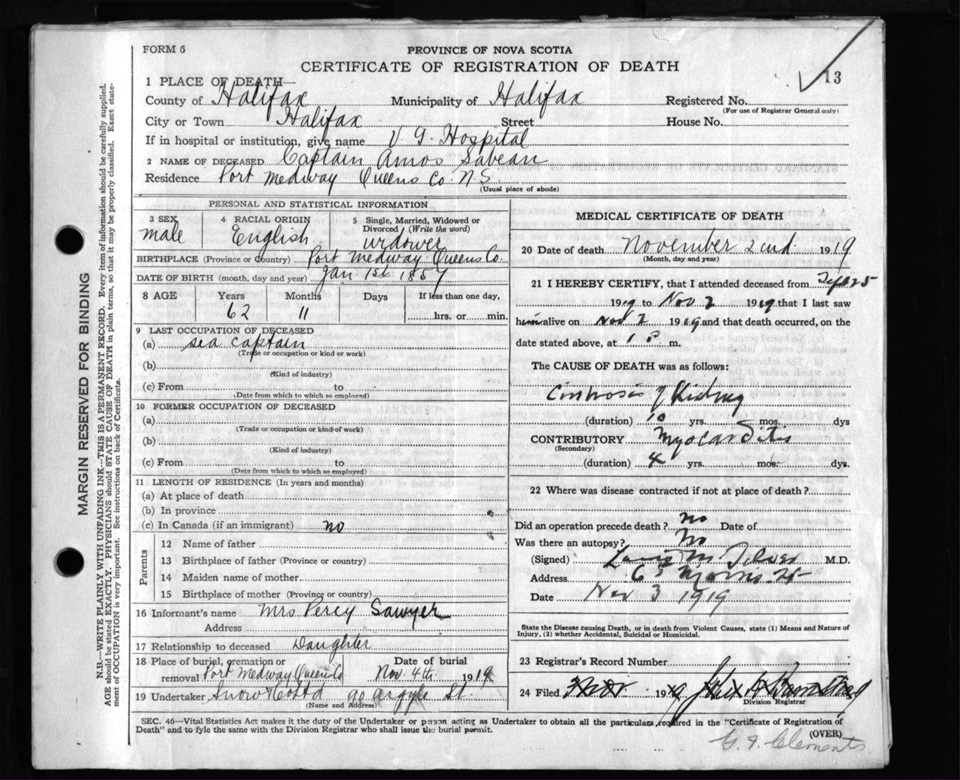 FORM 6
PROVINCE OF NOVA SCOTIA
CERTIFICATE OF REGISTRATION OF DEATH
13
1 PLACE OF DEATH—
County of Halifax Municipality of Halifax Registered No.
(For use of Registrar General only)
City or Town Halifax Street House No.
If in hospital or institution, give name V G. Hospital
2 NAME OF DECEASED Captain Amos Sabean
Residence Port Medway Queens Co. N.S.
(Usual place of abode)
PERSONAL AND STATISTICAL INFORMATION
3 SEX 4 RACIAL ORIGIN 5 Single, Married, Widowed or Divorced (Write the word)
male English widower
BIRTHPLACE (Province or Country) Port Medway Queens Co.
DATE OF BIRTH (month, day and year) Jan 1st 1857
8 AGE Years Months Days If less than one day,
62 11 hrs. or min.
9 LAST OCCUPATION OF DECEASED
(a) sea captain
(Trade or occupation or kind or work)
(b)
(Kind of industry)
(c) From to
(Date from which to which so employed)
10 FORMER OCCUPATION OF DECEASED
(a)
(Trade or occupation or kind of work)
(b)
(Kind of industry)
(c) From to
(Date from which to which so employed)
11 LENGTH OF RESIDENCE (In years and months)
(a) At place of death
(b) In province
(c) In Canada (if an immigrant) no
Parents
12 Name of father
13 Birthplace of father (Province or country)
14 Maiden name of mother
15 Birthplace of mother (Province or country)
16 Informant's name Mrs Percy Sawyer
Address
17 Relationship to deceased Daughter
18 Place of burial, cremation or removal Port Medway Queens Co Date of burial Nov. 4th. 1919
19 Undertaker Snow & Co Ltd 90 Argyle St.
(Name and Address)
MEDICAL CERTIFICATE OF DEATH
20 Date of death November 2nd 1919
(Month, day and year)
21 I HEREBY CERTIFY, that I attended deceased from Sept 25
1919 to Nov 2 1919 that I last saw
him alive on Nov 2 1919 and that death occurred, on the
date stated above, at 1 P m.
The CAUSE OF DEATH was as follows:
Cirrhosis of Kidney
(duration) 10 yrs. mos. dys
CONTRIBUTORY Myocarditis
(Secondary)
(duration) 4 yrs. mos. dys.
22 Where was disease contracted if not at place of death?
Did an operation precede death? No Date of
Was there an autopsy? No
(Signed) M.D.
Address 65 Morris St
Date Nov 3 1919
State the Disease causing Death, or in death from Violent Causes, state (1) Means and Nature of
Injury, (2) whether Accidental, Suicidal or Homicidal.
23 Registrar's Record Number
24 Filed 19
Division Registrar
SEC. 46—Vital Statistics Act makes it the duty of the Undertaker or person acting as Undertaker to obtain all the particulars required in the "Certificate of Registration of
Death" and to fyle the same with the Division Registrar who shall issue the burial permit.
(OVER)
G. F. Clements
MARGIN RESERVED FOR BINDING
N.B.—WRITE PLAINLY WITH UNFADING INK—THIS IS A PERMANENT RECORD. Every item of information should be carefully supplied.
AGE should be stated EXACTLY. PHYSICIANS should STATE CAUSE OF DEATH in plain terms, so that it may be properly classified. Exact state-
ment of OCCUPATION is very important. See instructions on back of Certificate.